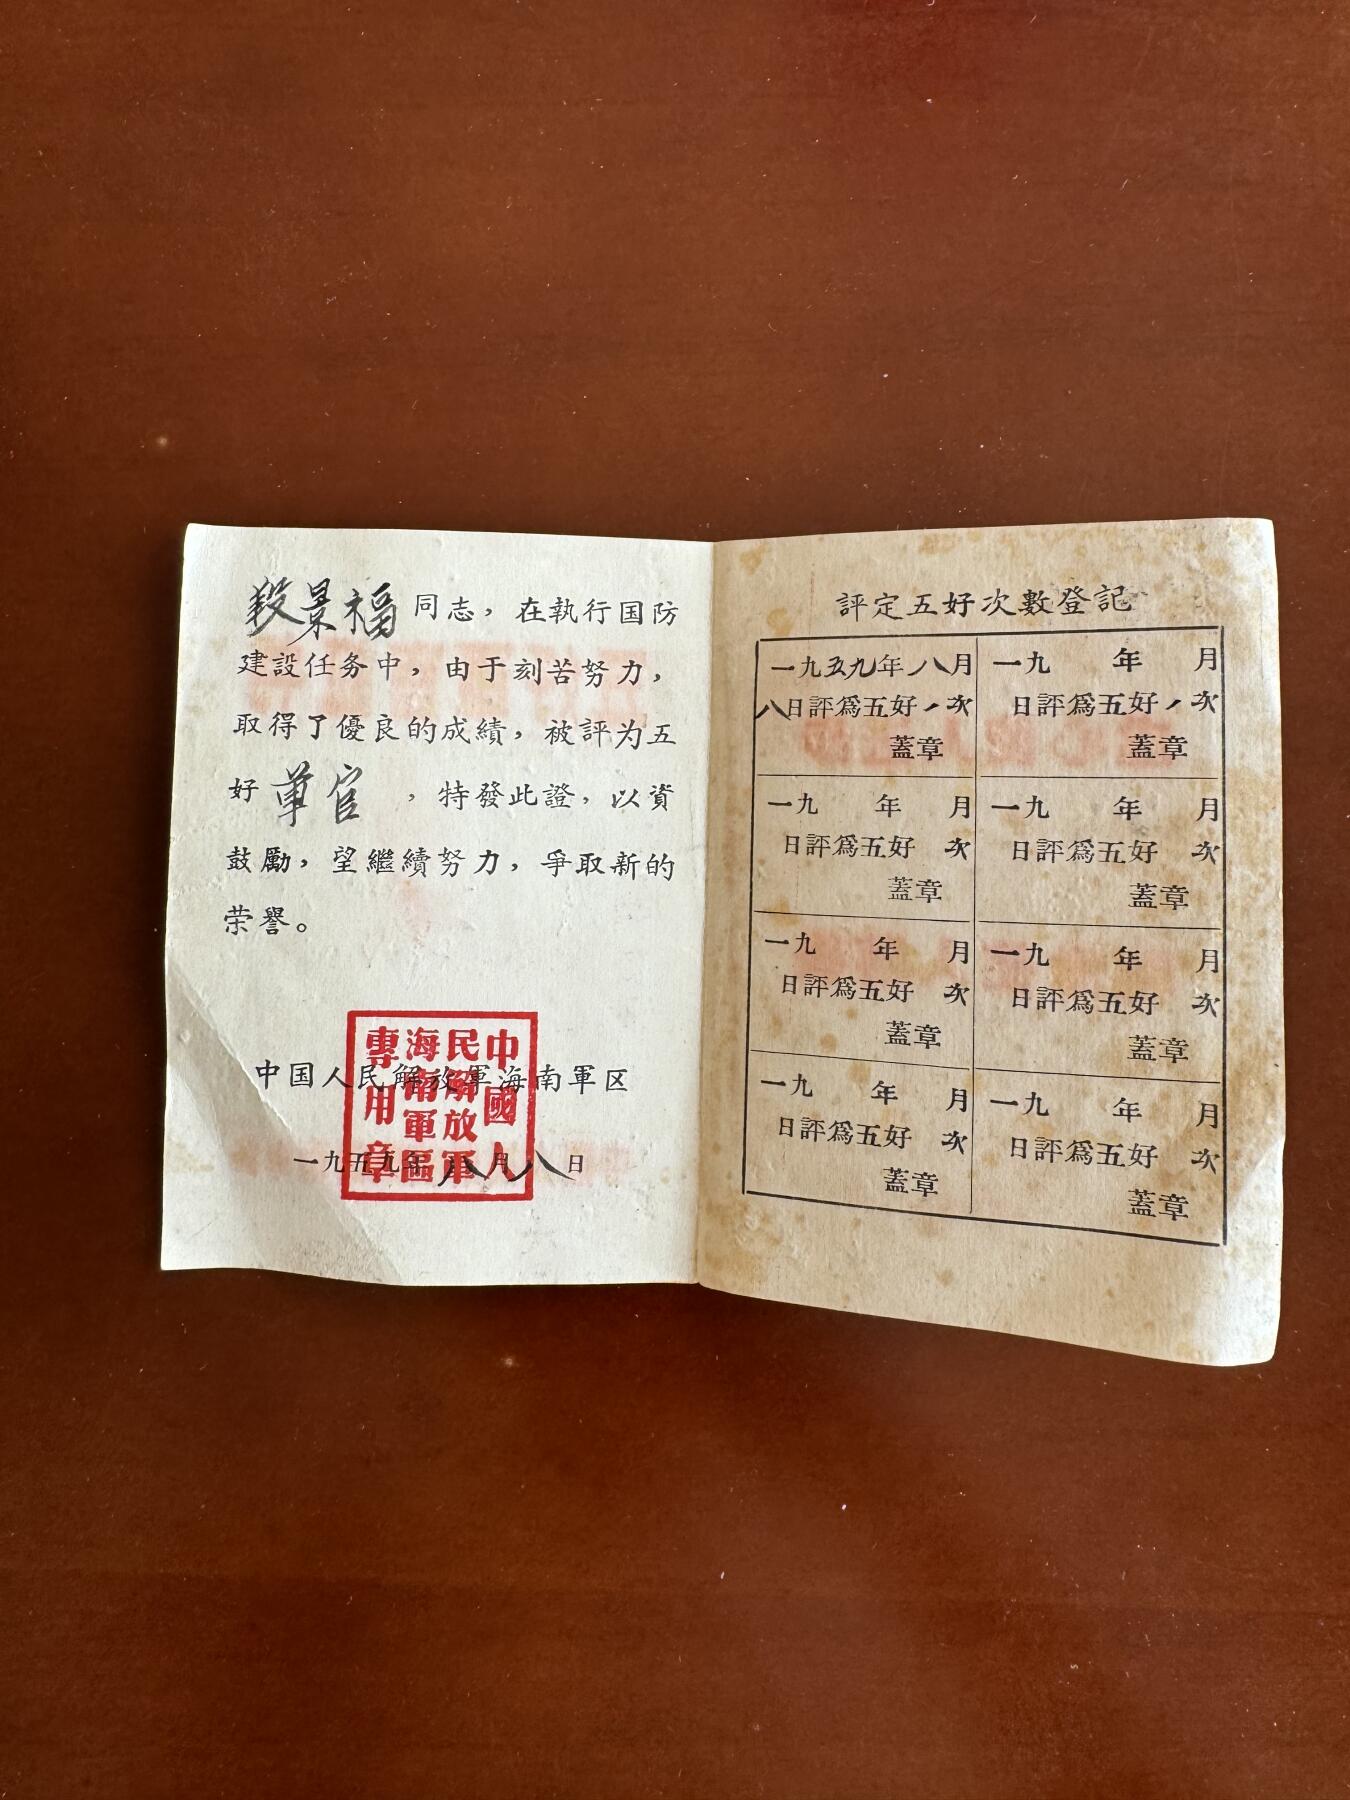 段景福同志，在執行国防
建設任务中，由于刻苦努力，
取得了優良的成績，被評为五
好軍官，特發此證，以資
鼓勵，望繼續努力，爭取新的
荣譽。
中国人民解放軍海南軍区
一九五九年八月八日
中國人
民解放軍
海南軍區
專用章
評定五好次數登記
一九五九年八月
八日評爲五好1次
蓋章
一九 年 月
日評爲五好1次
蓋章
一九 年 月
日評爲五好 次
蓋章
一九 年 月
日評爲五好 次
蓋章
一九 年 月
日評爲五好 次
蓋章
一九 年 月
日評爲五好 次
蓋章
一九 年 月
日評爲五好 次
蓋章
一九 年 月
日評爲五好 次
蓋章